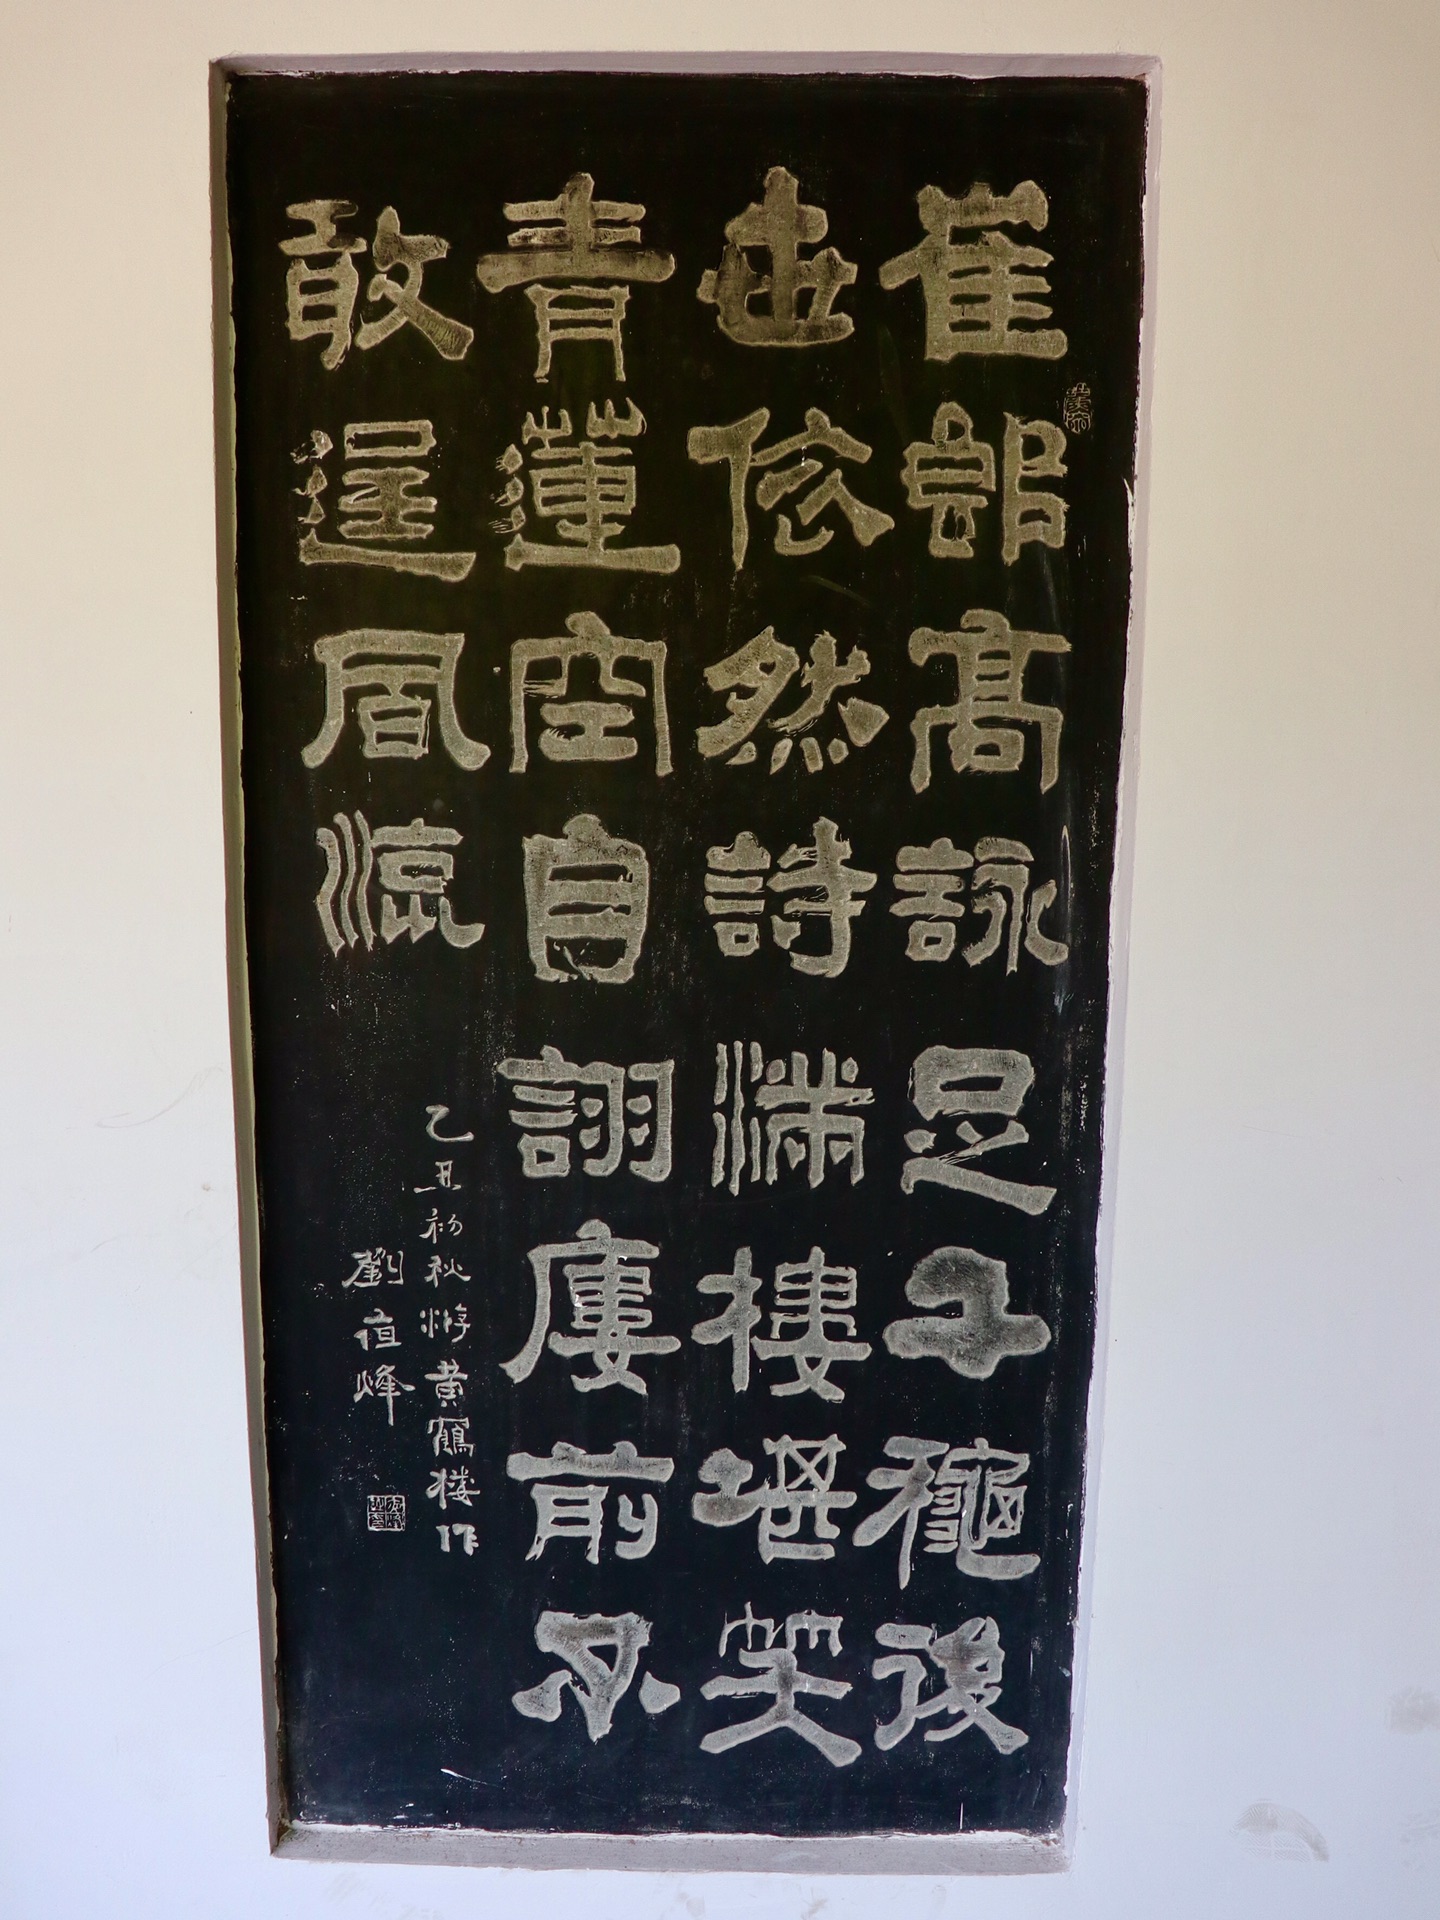 崔郎高詠足千秋後
世依然詩滿樓堪笑
青蓮空自詡廔前不
敢逞風流
乙丑初秋游黄鶴楼作
劉 烽